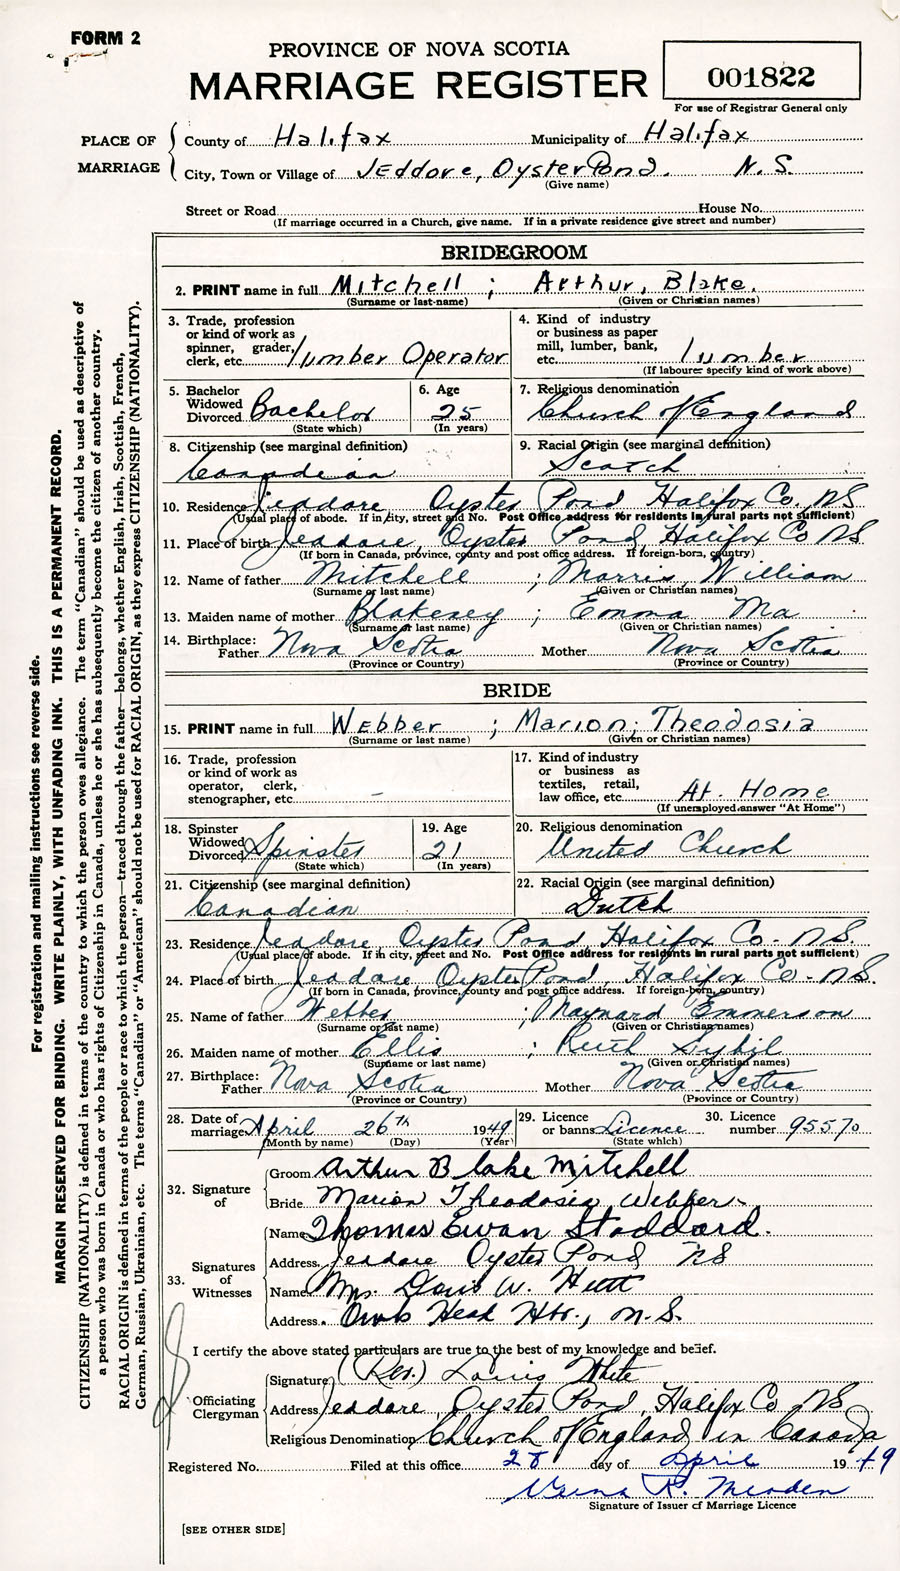 FORM 2
PROVINCE OF NOVA SCOTIA
MARRIAGE REGISTER
001822
For use of Registrar General only
PLACE OF MARRIAGE
County of Halifax Municipality of Halifax
City, Town or Village of Jeddore, Oyster Pond. N.S.
(Give name)
Street or Road House No.
(If marriage occurred in a Church, give name. If in a private residence give street and number)
BRIDEGROOM
2. PRINT name in full Mitchell ; Arthur, Blake.
(Surname or last-name) (Given or Christian names)
3. Trade, profession or kind of work as spinner, grader, clerk, etc. lumber Operator
4. Kind of industry or business as paper mill, lumber, bank, etc. lumber
(If labourer specify kind of work above)
5. Bachelor Widowed Divorced Bachelor
(State which)
6. Age 25
(In years)
7. Religious denomination
Church of England
8. Citizenship (see marginal definition)
Canadian
9. Racial Origin (see marginal definition)
Scotch
10. Residence Jeddore, Oyster Pond Halifax Co, NS
(Usual place of abode. If in city, street and No. Post Office address for residents in rural parts not sufficient)
11. Place of birth Jeddore, Oyster Pond, Halifax Co NS
(If born in Canada, province, county and post office address. If foreign-born, country)
12. Name of father Mitchell ; Morris, William
(Surname or last name) (Given or Christian names)
13. Maiden name of mother Blakeney ; Emma Ma
(Surname or last name) (Given or Christian names)
14. Birthplace: Father Nova Scotia Mother Nova Scotia
(Province or Country) (Province or Country)
BRIDE
15. PRINT name in full Webber ; Marion, Theodosia
(Surname or last name) (Given or Christian names)
16. Trade, profession or kind of work as operator, clerk, stenographer, etc. -
17. Kind of industry or business as textiles, retail, law office, etc. At Home
(If unemployed answer "At Home")
18. Spinster Widowed Divorced Spinster
(State which)
19. Age 21
(In years)
20. Religious denomination
United Church
21. Citizenship (see marginal definition)
Canadian
22. Racial Origin (see marginal definition)
Dutch
23. Residence Jeddore, Oyster Pond Halifax Co. NS.
(Usual place of abode. If in city, street and No. Post Office address for residents in rural parts not sufficient)
24. Place of birth Jeddore Oyster Pond, Halifax Co. NS.
(If born in Canada, province, county and post office address. If foreign-born, country)
25. Name of father Webber ; Maynard Emmerson
(Surname or last name) (Given or Christian names)
26. Maiden name of mother Ellis ; Ruth Sybil
(Surname or last name) (Given or Christian names)
27. Birthplace: Father Nova Scotia Mother Nova Scotia
(Province or Country) (Province or Country)
28. Date of marriage April 26th 1949
(Month by name) (Day) (Year)
29. Licence or banns Licence
(State which)
30. Licence number 95570
32. Signature of
Groom Arthur Blake Mitchell
Bride Marion Theodosia Webber
33. Signatures of Witnesses
Name Thomas Ewan Stoddard.
Address Jeddore Oyster Pond NS
Name Mrs Doris W. Hutt
Address Owls Head Hbr., N.S.
I certify the above stated particulars are true to the best of my knowledge and belief.
Officiating Clergyman
Signature (Rev.) Louis White
Address Jeddore, Oyster Pond, Halifax Co NS
Religious Denomination Church of England in Canada
Registered No. Filed at this office 28 day of April 1949
R. Meaden
Signature of Issuer of Marriage Licence
[SEE OTHER SIDE]
For registration and mailing instructions see reverse side.
MARGIN RESERVED FOR BINDING. WRITE PLAINLY, WITH UNFADING INK. THIS IS A PERMANENT RECORD.
CITIZENSHIP (NATIONALITY) is defined in terms of the country to which the person owes allegiance. The term "Canadian" should be used as descriptive of
a person who was born in Canada or who has rights of Citizenship in Canada, unless he or she has subsequently become the citizen of another country.
RACIAL ORIGIN is defined in terms of the people or race to which the person—traced through the father—belongs, whether English, Irish, Scottish, French,
German, Russian, Ukrainian, etc. The terms "Canadian" or "American" should not be used for RACIAL ORIGIN, as they express CITIZENSHIP (NATIONALITY).